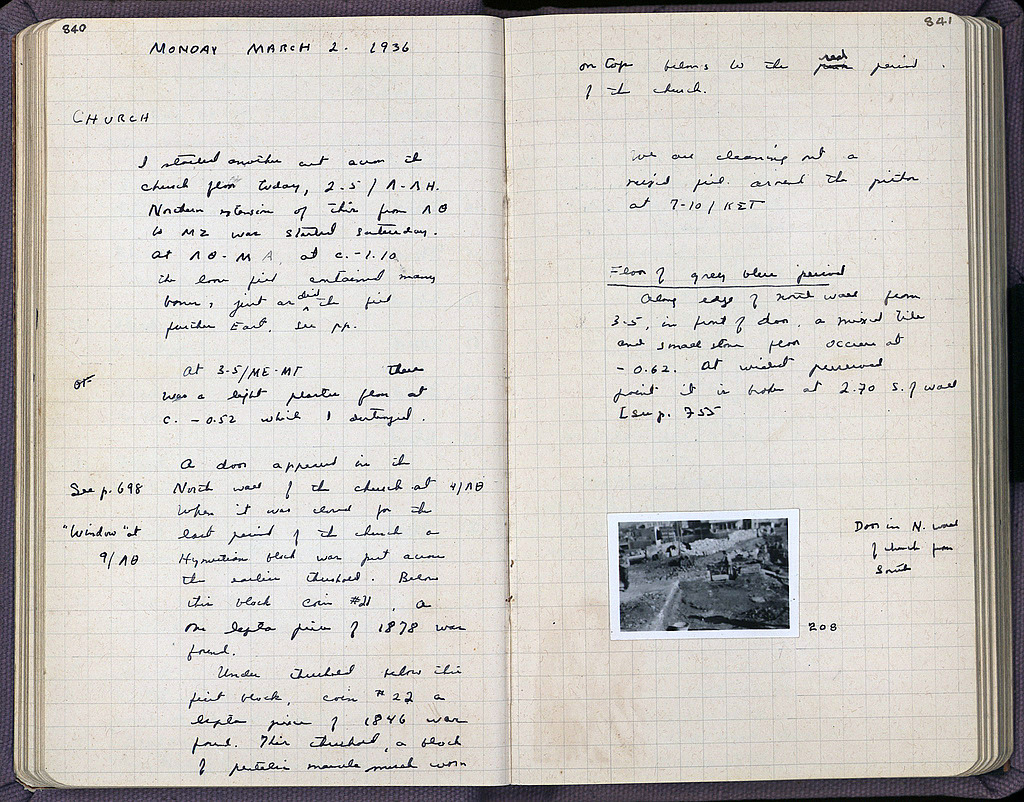 840
MONDAY MARCH 2. 1936
CHURCH
I started another cut across the
church floor today, 2-5/Λ-ΛH.
Northern extension of this from ΛΘ
to MZ was started Saturday.
At ΛΘ-MA, at c. -1.10
the loose fill contained many
bones, just as did the fill
further East, see pp.
At 3-5/ME-MT there
was a light plaster floor at
c. -0.52 which I destroyed.
A door appeared in the
See p. 698 North wall of the church at 4/ΛΘ
When it was closed for the
"Window" at last period of the church a
9/ΛΘ Hymettian block was put across
the earlier threshold. Below
this block coin #21, a
one lepta piece of 1878 was
found.
Under threshold below this
first block, coin #22 a
lepta piece of 1846 was
found. This threshold, a block
of pentelic marble much worn
841
on top belongs to the red period
of the church.
We are cleaning out a
mixed fill around the
at 7-10/KET
Floor of grey blue period
Along edge of north wall from
3-5, in front of door, a mixed tile
and small stone floor occurs at
-0.62. At widest preserved
point it is broken at 2.70 S. of wall
[See p. 755
Door in N. wall
of church from
South
208